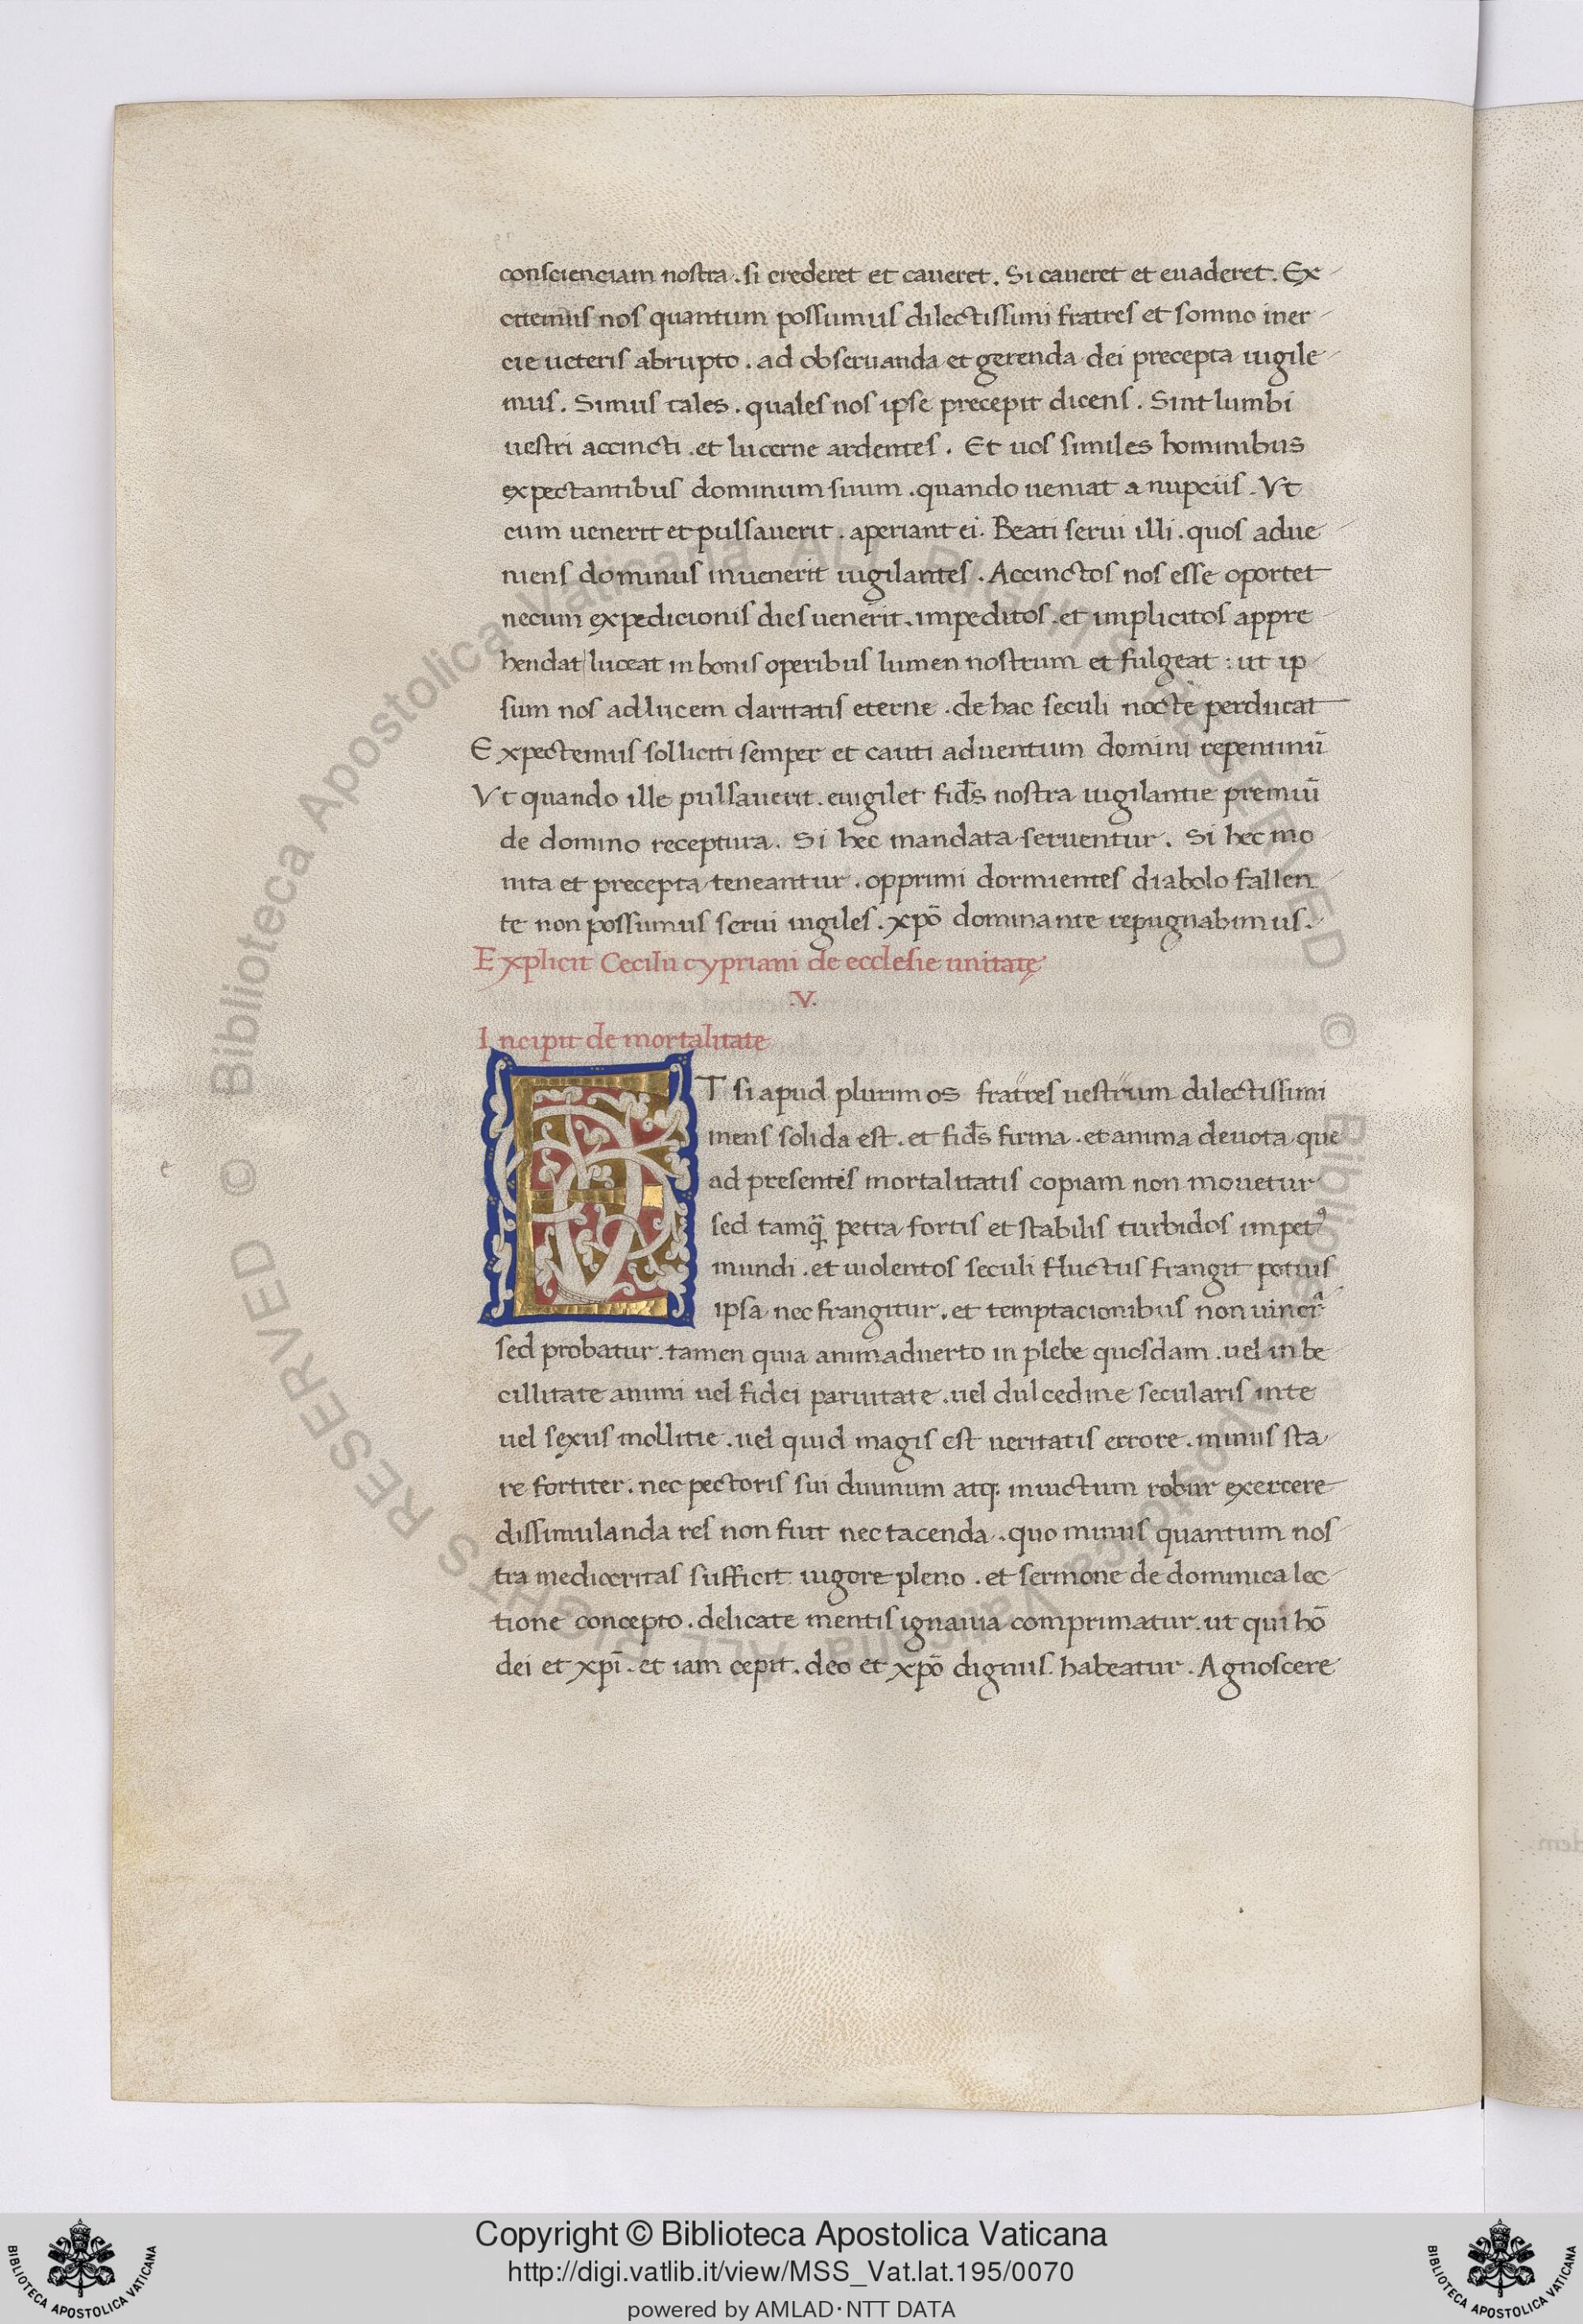 conscienciam nostra. si crederet et caueret. Si caueret et euaderet. Ex
citemus nos quantum possumus dilectissimi fratres et somno iner
cie ueteris abrupto. ad obseruanda et gerenda dei precepta uigile
mus. Simus tales. quales nos ipse precepit dicens. Sint lumbi
uestri accincti. et lucerne ardentes. Et uos similes hominibus
expectantibus dominum suum. quando ueniat a nupciis. Vt
cum uenerit et pulsauerit. aperiant ei. Beati serui illi. quos adue
niens dominus inuenerit uigilantes. Accinctos nos esse oportet
necum expedicionis dies uenerit. impeditos. et implicitos appre
hendat luceat in bonis operibus lumen nostrum et fulgeat: ut ip
sum nos ad lucem claritatis eterne. de hac seculi nocte perducat
Expectemus solliciti semper et cauti aduentum domini repentinū
Vt quando ille pulsauerit. euigilet fids̄ nostra uigilantie premiū
de domino receptura. Si hec mandata seruentur. Si hec mo
nita et precepta teneantur. opprimi dormientes diabolo fallen
te non possumus serui uigiles. xpō dominante repugnabimus.
Explicit Cecilii cypriani de ecclesie unitatę
.V.
Incipit de mortalitate
ET si apud plurimos fratres uestrum dilectissimi
mens solida est. et fids̄ firma. et anima deuota que
ad presentis mortalitatis copiam non mouetur
sed tamq̄ petra fortis et stabilis turbidos impetꝰ
mundi. et uiolentos seculi fluctus frangit potius
ipsa nec frangitur. et temptacionibus non uincit̄
sed probatur. tamen quia animaduerto in plebe quosdam. uel in be
cillitate animi uel fidei paruitate. uel dulcedine secularis inte
uel sexus mollitie. uel quid magis est ueritatis errore. minus sta
re fortiter. nec pectoris sui diuinum atq; inuictum robur exercere
dissimulanda res non fuit nec tacenda. quo minus quantum nos
tra mediocritas sufficit uigore pleno. et sermone de dominica lec
tione concepto. delicate mentis ignauia comprimatur. ut qui hō
dei et xpī. et iam cepit. deo et xpō dignus habeatur. Agnoscere
Copyright © Biblioteca Apostolica Vaticana
http://digi.vatlib.it/view/MSS_Vat.lat.195/0070
powered by AMLAD·NTT DATA